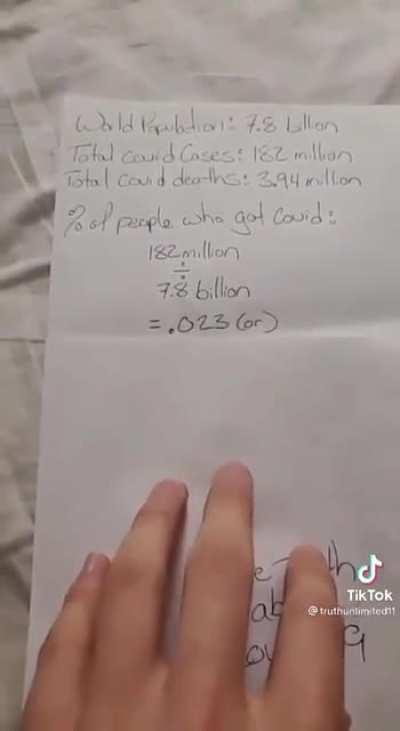 World Population: 7.8 billion
Total Covid Cases: 182 million
Total Covid deaths: 3.94 million
% of people who got Covid:
182 million
÷
7.8 billion
= .023 (or)
TikTok
@truthunlimited11